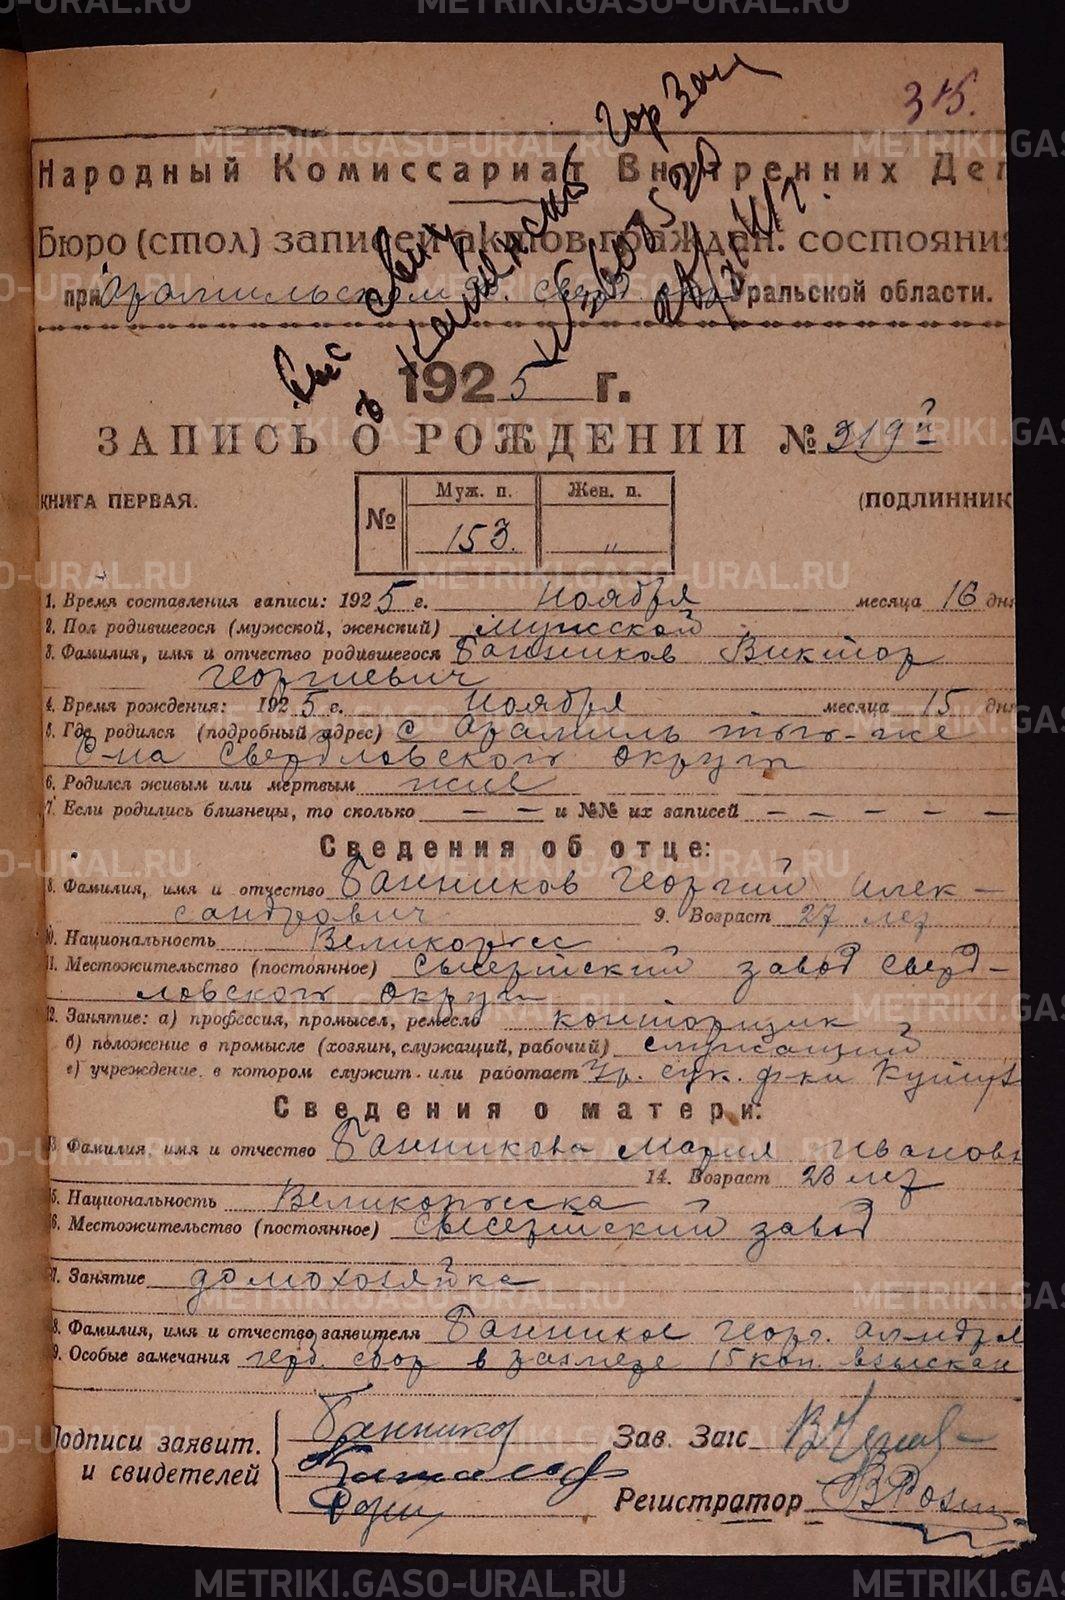 315.
Народный Комиссариат Внутренних Дел
Бюро (стол) записей актов граждан. состояния
при Арамильском Уральской области.
1925 г.
ЗАПИСЬ О РОЖДЕНИИ № 319й
КНИГА ПЕРВАЯ. (ПОДЛИННИК
№ Муж. п. Жен. п.
153. "
1. Время составления записи: 1925 г. Ноября месяца 16 дня
2. Пол родившегося (мужской, женский) Мужской
3. Фамилия, имя и отчество родившегося Банников Виктор
Георгиевич
4. Время рождения: 1925 г. Ноября месяца 15 дня
5. Где родился (подробный адрес) с Арамиль того-же
с-на Свердловского округа
6. Родился живым или мертвым жив
7. Если родились близнецы, то сколько — — и №№ их записей — — — — —
Сведения об отце:
8. Фамилия, имя и отчество Банников Георгий Алек-
сандрович 9. Возраст 27 лет
10. Национальность Великорусс
11. Местожительство (постоянное) Сысертский завод Сверд-
ловского округа
12. Занятие: а) профессия, промысел, ремесло конторщик
б) положение в промысле (хозяин, служащий, рабочий) служащий
в) учреждение, в котором служит или работает сук. ф-ки
Сведения о матери:
13. Фамилия, имя и отчество Банникова Мария Ивановн
14. Возраст 23 лет
15. Национальность Великорусска
16. Местожительство (постоянное) Сысертский завод
17. Занятие домохозяйка
18. Фамилия, имя и отчество заявителя Банников Георг.
19. Особые замечания герб. сбор в размере 15 коп. взыскан
Подписи заявит. Банников Зав. Загс
и свидетелей
Регистратор
METRIKI.GASO-URAL.RU